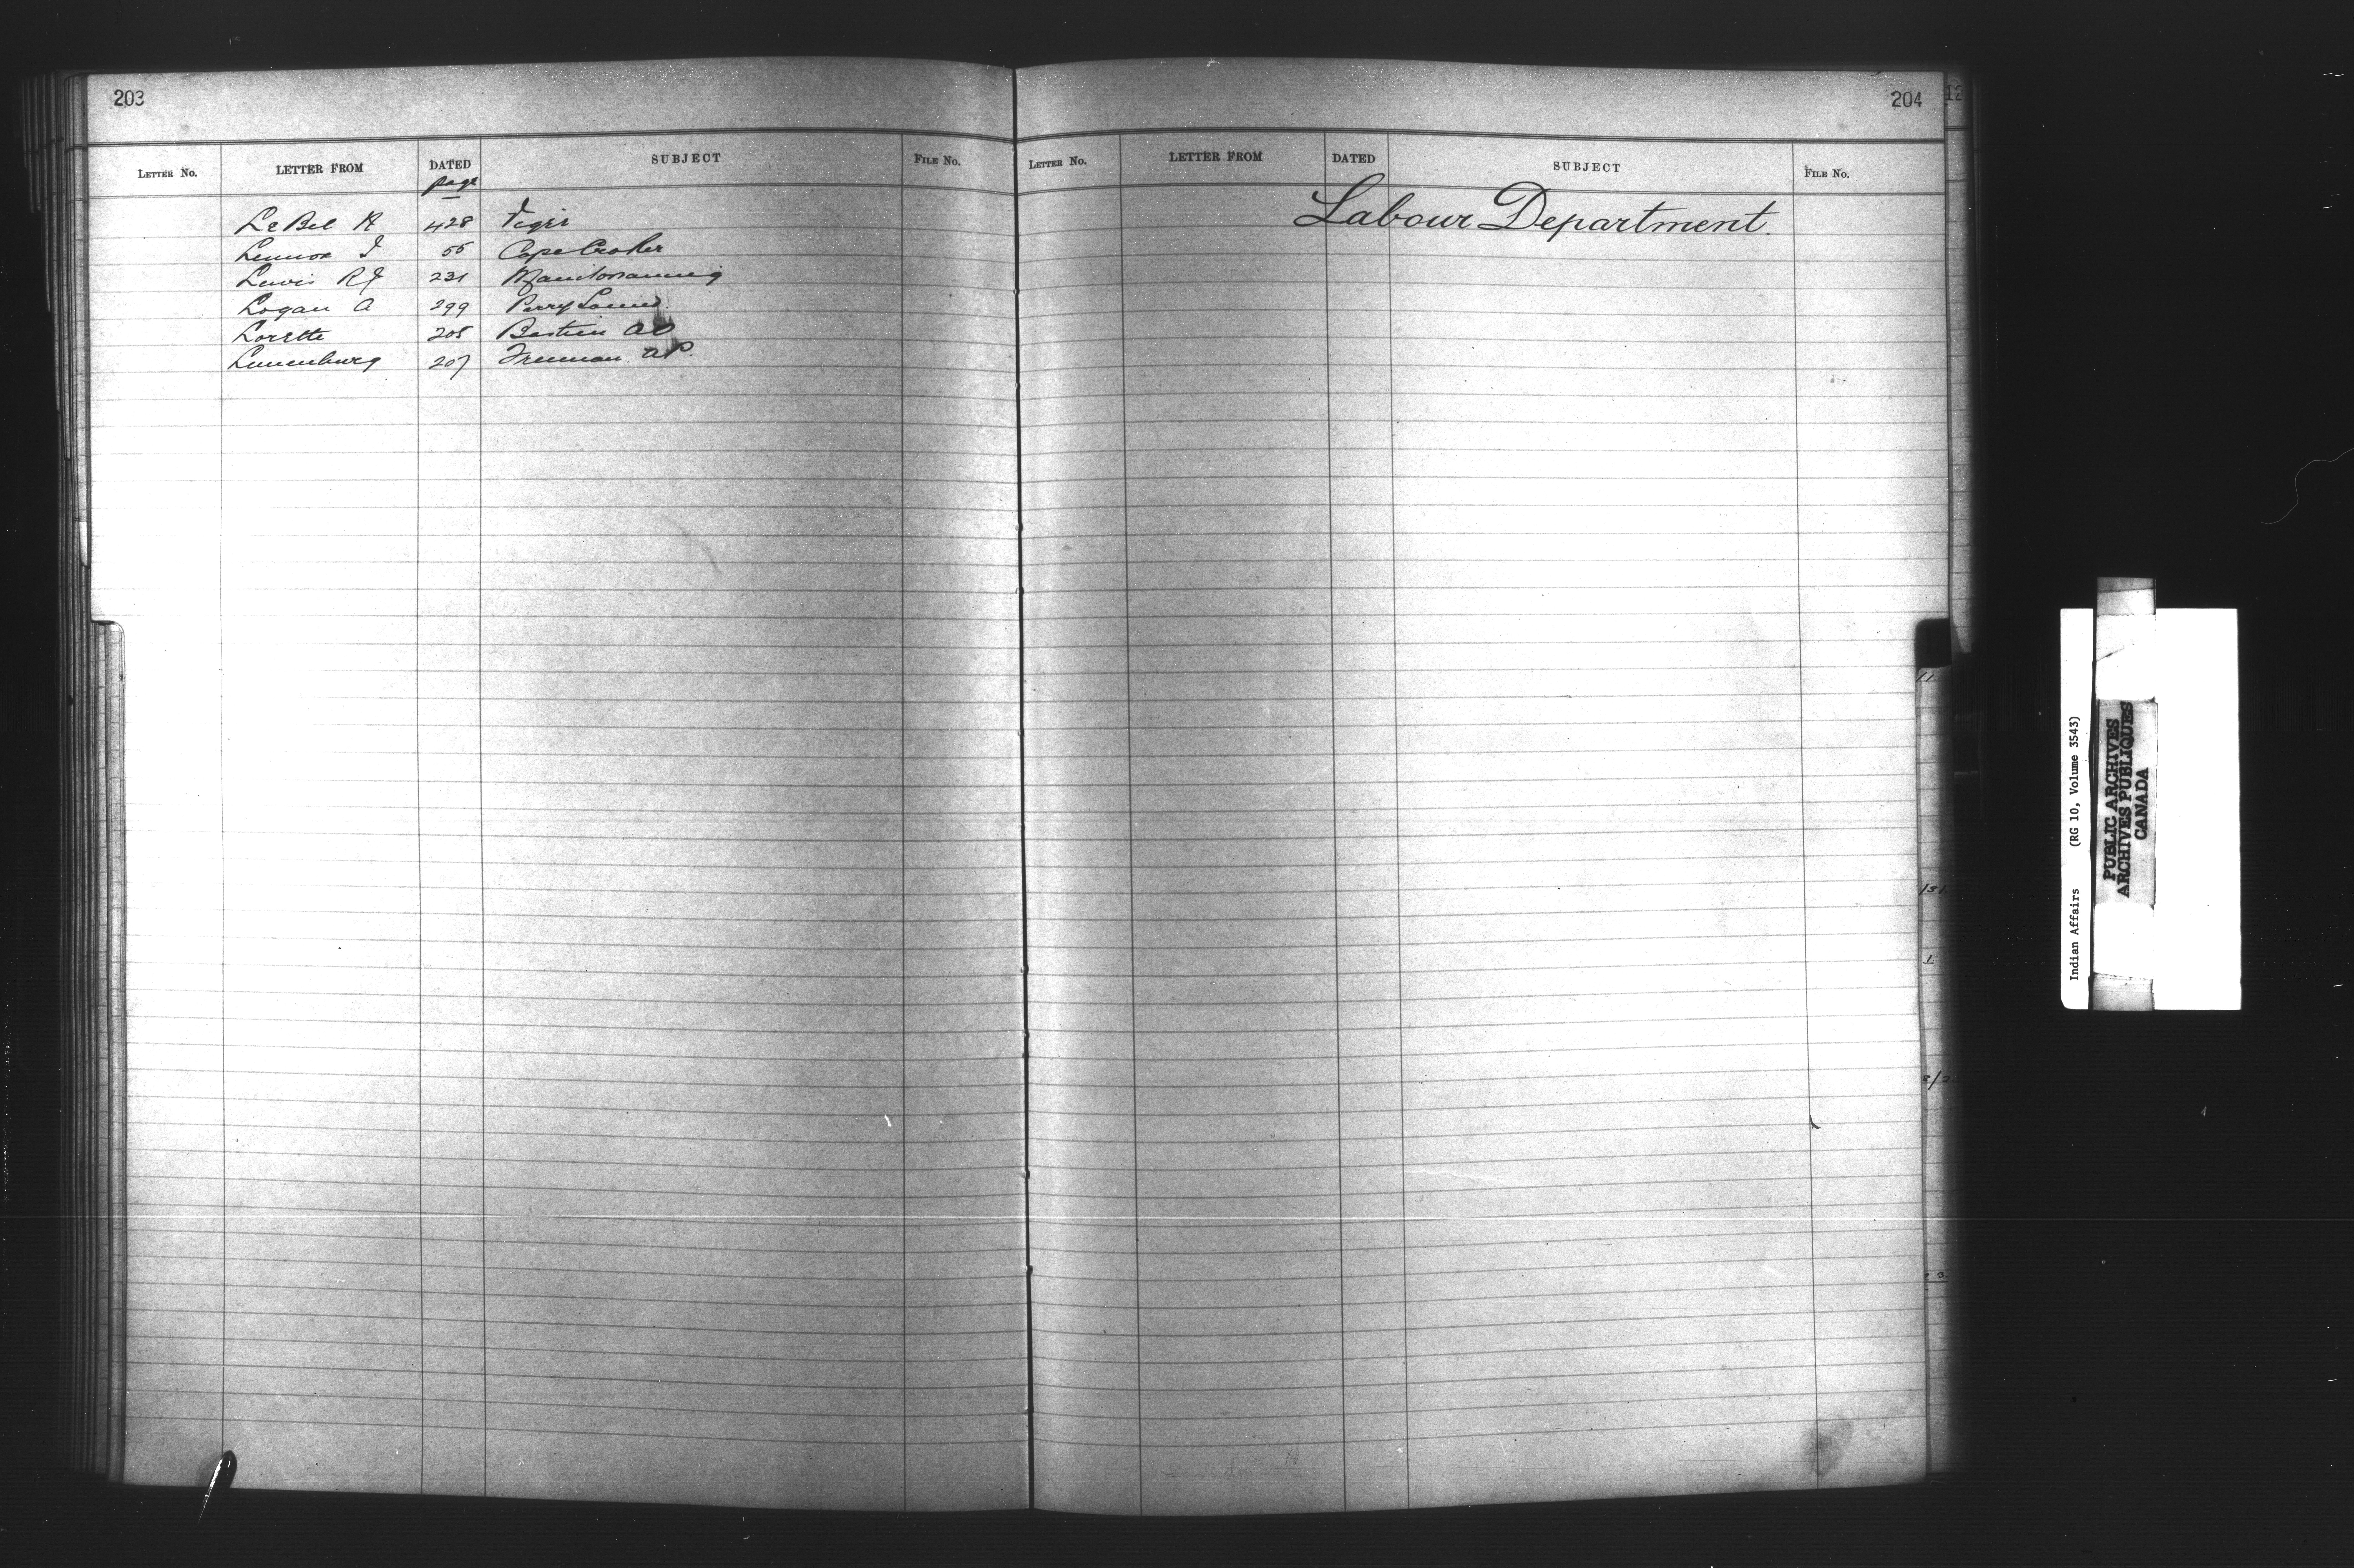 203
LETTER No. LETTER FROM DATED SUBJECT FILE No.
page
LeBel R 428 Viger
Lennox J 55 Cape Croker
Lewis RJ 231 Manitowaning
Logan A 299 Parry Sound
Lorette 205 Bastien AO
Lunenburg 207 Freeman. NP.
204
LETTER No. LETTER FROM DATED SUBJECT FILE No.
Labour Department.
12
11
Indian Affairs (RG 10, Volume 3543)
PUBLIC ARCHIVES
ARCHIVES PUBLIQUES
CANADA